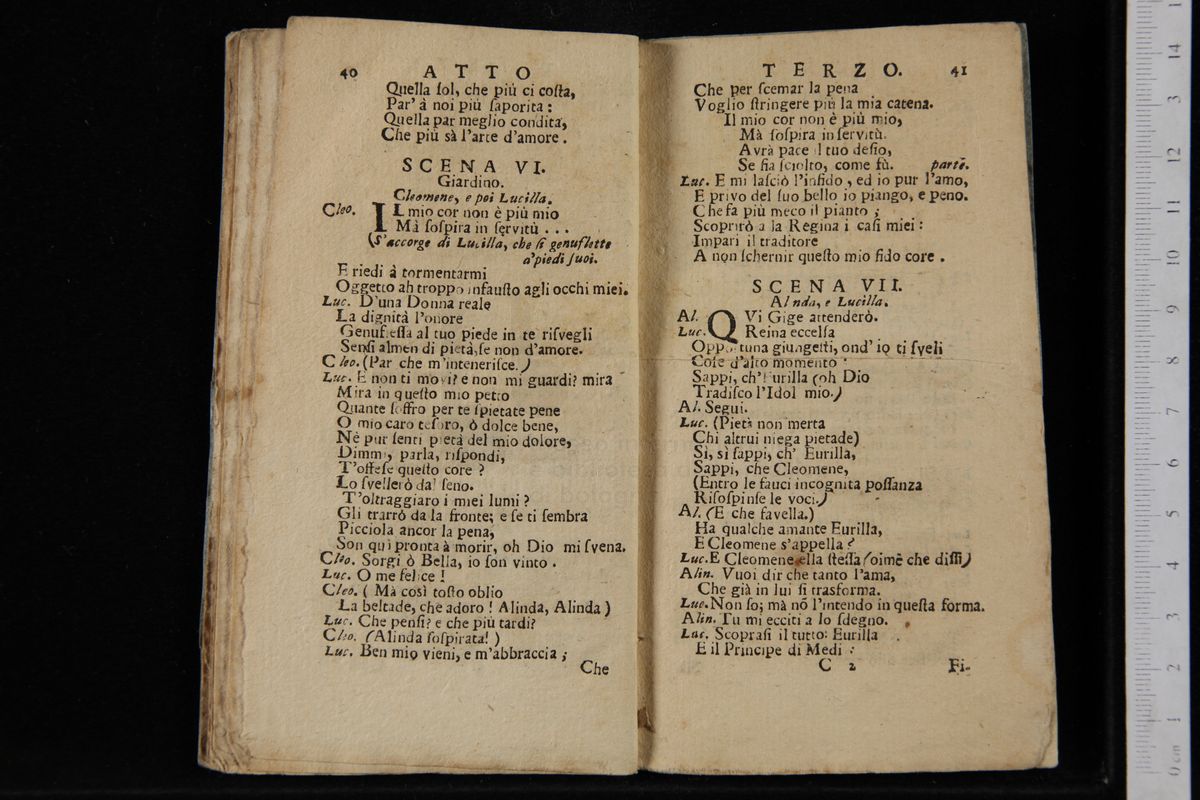 40 ATTO
Quella ſol, che più ci coſta,
Par' à noi più ſaporita:
Quella par meglio condita,
Che più sà l'arte d'amore.
SCENA VI.
Giardino.
Cleomene, e poi Lucilla.
Cleo. IL mio cor non è più mio
Mà ſoſpira in ſervitù . . .
(S'accorge di Lucilla, che ſi genuflette
a'piedi ſuoi.
E riedi à tormentarmi
Oggetto ah troppo infauſto agli occhi miei.
Luc. D'una Donna reale
La dignità l'onore
Genufleſſa al tuo piede in te riſvegli
Senſi almen di pietà, ſe non d'amore.
Cleo. (Par che m'inteneriſce.)
Luc. E non ti movi? e non mi guardi? mira
Mira in queſto mio petto
Quante ſoffro per te ſpietate pene
O mio caro teſoro, ò dolce bene,
Nè pur ſenti pietà del mio dolore,
Dimmi, parla, riſpondi,
T'offeſe queſto core ?
Lo ſvellerò dal ſeno.
T'oltraggiaro i miei lumi ?
Gli trarrò da la fronte; e ſe ti ſembra
Picciola ancor la pena,
Son qui pronta à morir, oh Dio mi ſvena.
Cleo. Sorgi ò Bella, io ſon vinto.
Luc. O me felice !
Cleo. ( Mà così toſto oblio
La beltade, che adoro ! Alinda, Alinda )
Luc. Che penſi? e che più tardi?
Cleo. (Alinda ſoſpirata! )
Luc. Ben mio vieni, e m'abbraccia ;
Che
TERZO. 41
Che per ſcemar la pena
Voglio ſtringere più la mia catena.
Il mio cor non è più mio,
Mà ſoſpira in ſervitù.
Avrà pace il tuo deſio,
Se ſia ſciolto, come fù. parte.
Luc. E mi laſciò l'infido, ed io pur l'amo,
E privo del ſuo bello io piango, e peno.
Che fa più meco il pianto ;
Scoprirò a la Regina i caſi miei :
Impari il traditore
A non ſchernir queſto mio fido core .
SCENA VII.
Alinda, e Lucilla.
Al. QVi Gige attenderò.
Luc. Reina eccelſa
Opportuna giungeſti, ond' io ti ſveli
Coſe d'alto momento
Sappi, ch'Eurilla (oh Dio
Tradiſco l'Idol mio.)
Al. Segui.
Luc. (Pietà non merta
Chi altrui niega pietade)
Si, si ſappi, ch' Eurilla,
Sappi, che Cleomene,
(Entro le fauci incognita poſſanza
Riſoſpinſe le voci.)
Al. (E che favella.)
Ha qualche amante Eurilla,
E Cleomene s'appella ?
Luc. E Cleomene ella ſteſſa (oimè che diſſi)
Alin. Vuoi dir che tanto l'ama,
Che già in lui ſi trasforma.
Luc. Non ſo; mà nõ l'intendo in queſta forma.
Alin. Tu mi ecciti a lo ſdegno.
Luc. Scopraſi il tutto: Eurilla
E il Principe di Medi :
C 2 Fi-